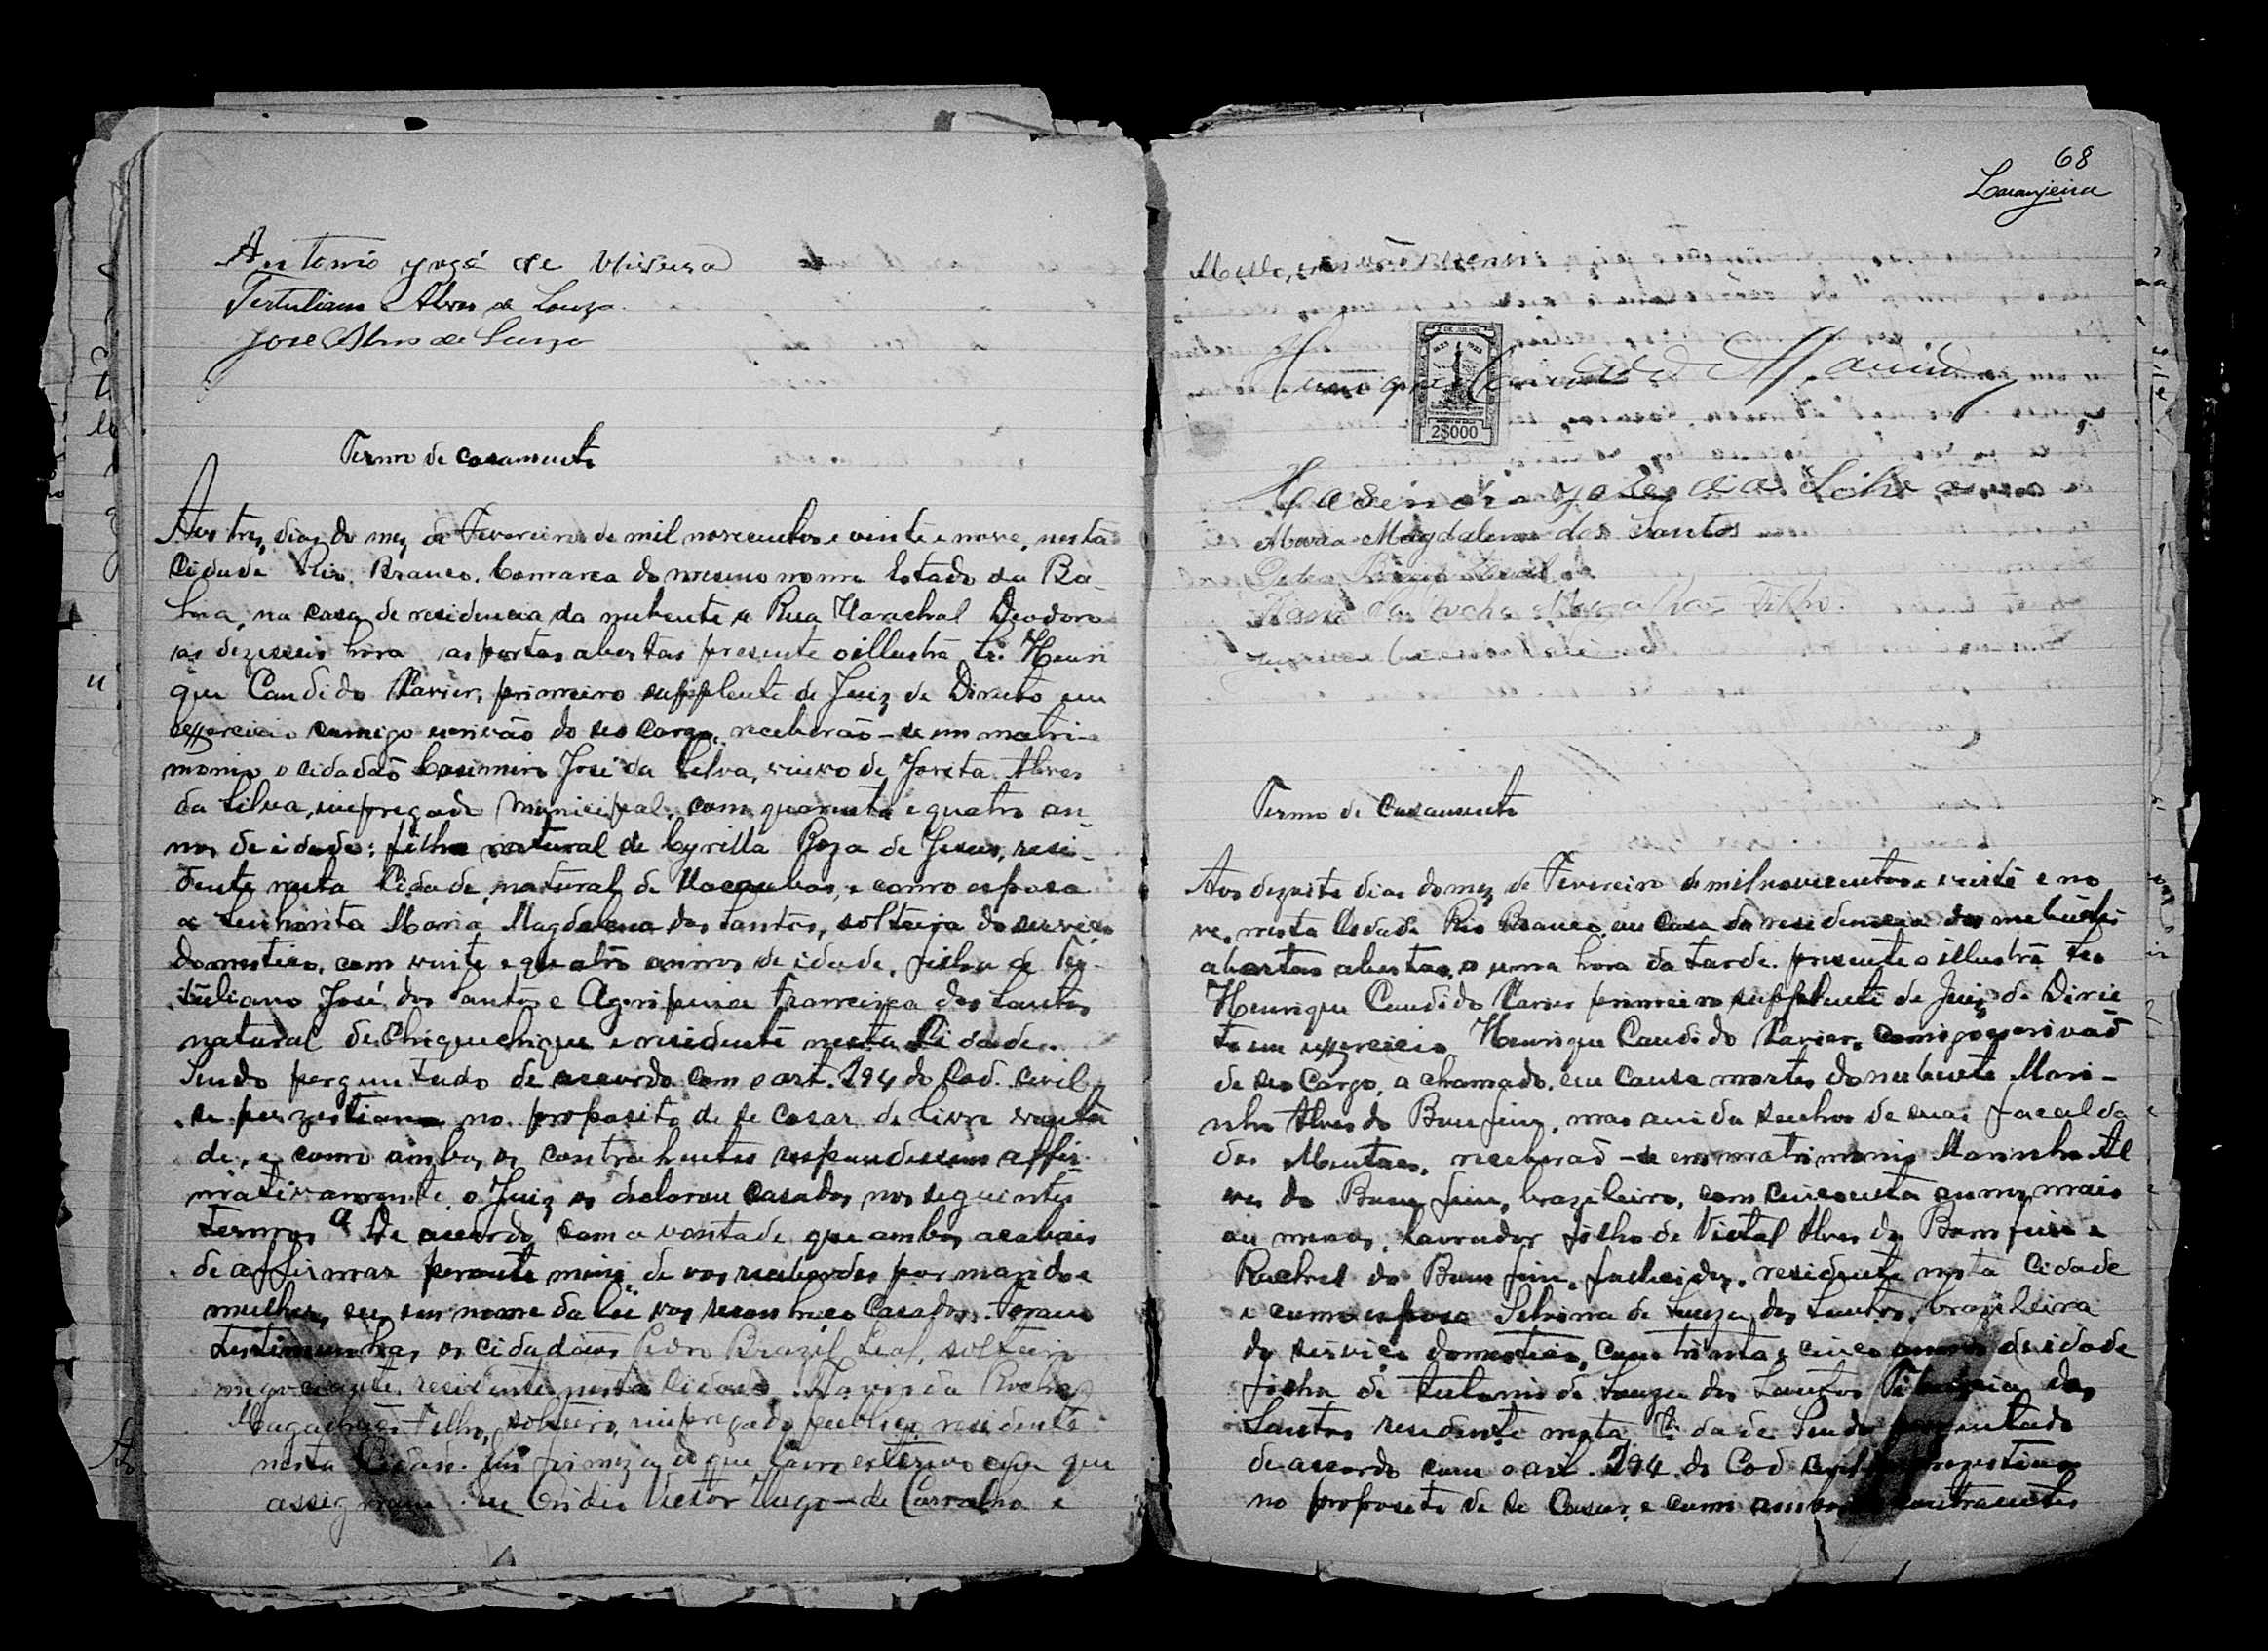 Antonio José de Oliveira
Tertuliano Alves de Souza.
José Alves de Souza
Termo de casamento
Aos tres dias do mez de Fevereiro de mil novecentos e vinte e nove, nesta
Cidade Rio Branco, Comarca do mesmo nome Estado da Ba-
hia, na casa de residencia da nubente a Rua Marechal Deodoro
as dezesseis hora as portas abertas presente o illustre Te. Henri
que Candido Xavier, primeiro supplente de Juiz de Direito em
exercicio comigo escrivão do seo cargo, receberão-se em matri-
monio o cidadão Casimiro José da Silva, viuvo de Jovita Alves
da Silva, impregado Municipal, com quarenta e quatro an-
nos de idade: filho natural de Cyrilla Roza de Jesus, resi-
dente nesta Cidade, natural de Macaubas, e como esposa
a Senhorita Maria Magdalena dos Santos, solteira do serviço
domestico, com vinte e quatro annos de idade, filha de Ter-
tuliano José dos Santos e Agripina Francisca dos Santos
natural de Chiquechique e residente nesta Cidade.
Sendo perguntado de acordo com o art. 194 do Cod. Civil,
se perzestiam no proposito de se casar de livre vonta
de, e como ambos os contrahentes respondessem affir-
mativamente o Juiz os declarou casados nos seguintes
termos "De acordo com a vontade que ambos acabais
de affirmar perante mim, de vos receberdes por marido e
mulher, eu, em nome da lei vos reconheço Casados. Foram
testimunhas os cidadãos Pedro Brazil Leal, solteiro
negociante, residente nesta Cidade da Rocha
Magalhães Filho, solteiro, impregado publico, residente
nesta Cidade. Em firmeza do que lavro este termo em que
assignam. Eu Ovidio Victor Hugo de Carvalho e
68
Laranjeira
Mello, escrivão escrevi
2 DE JULHO
1823 1923
2$000
Henrique Candido Xavier
Casimiro José da Silva
Maria Magdalena dos Santos
Pedro Brazil Leal
da Rocha Magalhães Filho.
Termo de Casamento
Aos dezoito dias do mez de Fevereiro de mil novecentos e vinte e no
ve, nesta Cidade Rio Branco em Casa da residencia dos nubentes
a portas abertas, a uma hora da tarde, presente o illustre Te
Henrique Candido Xavier primeiro supplente de Juiz de Direi
to em exercicio Henrique Candido Xavier, comigo escrivão
de seo Cargo, a chamado, em Causa mortes do nubente Mari-
nho Alves do Bomfim, mas ainda senhor de suas faculda
des Mentaes, receberão-se em matrimonio Marinho Al
ves do Bomfim, brazileiro, com cincoenta annos mais
ou menos, lavrador filho de Victal Alves do Bomfim e
Rachel do Bomfim, falicidos, residente nesta Cidade
e como esposa de Souza dos Santos, brazileira
do serviço domestico, com trinta e cinco annos de idade
filha de de Souza dos Santos dos
Santos residente nesta Cidade. Sendo perguntado
de acordo com o art. 194 do Cod Civil se perzestiam
no proposito de se Casar, e como ambos os contraentes